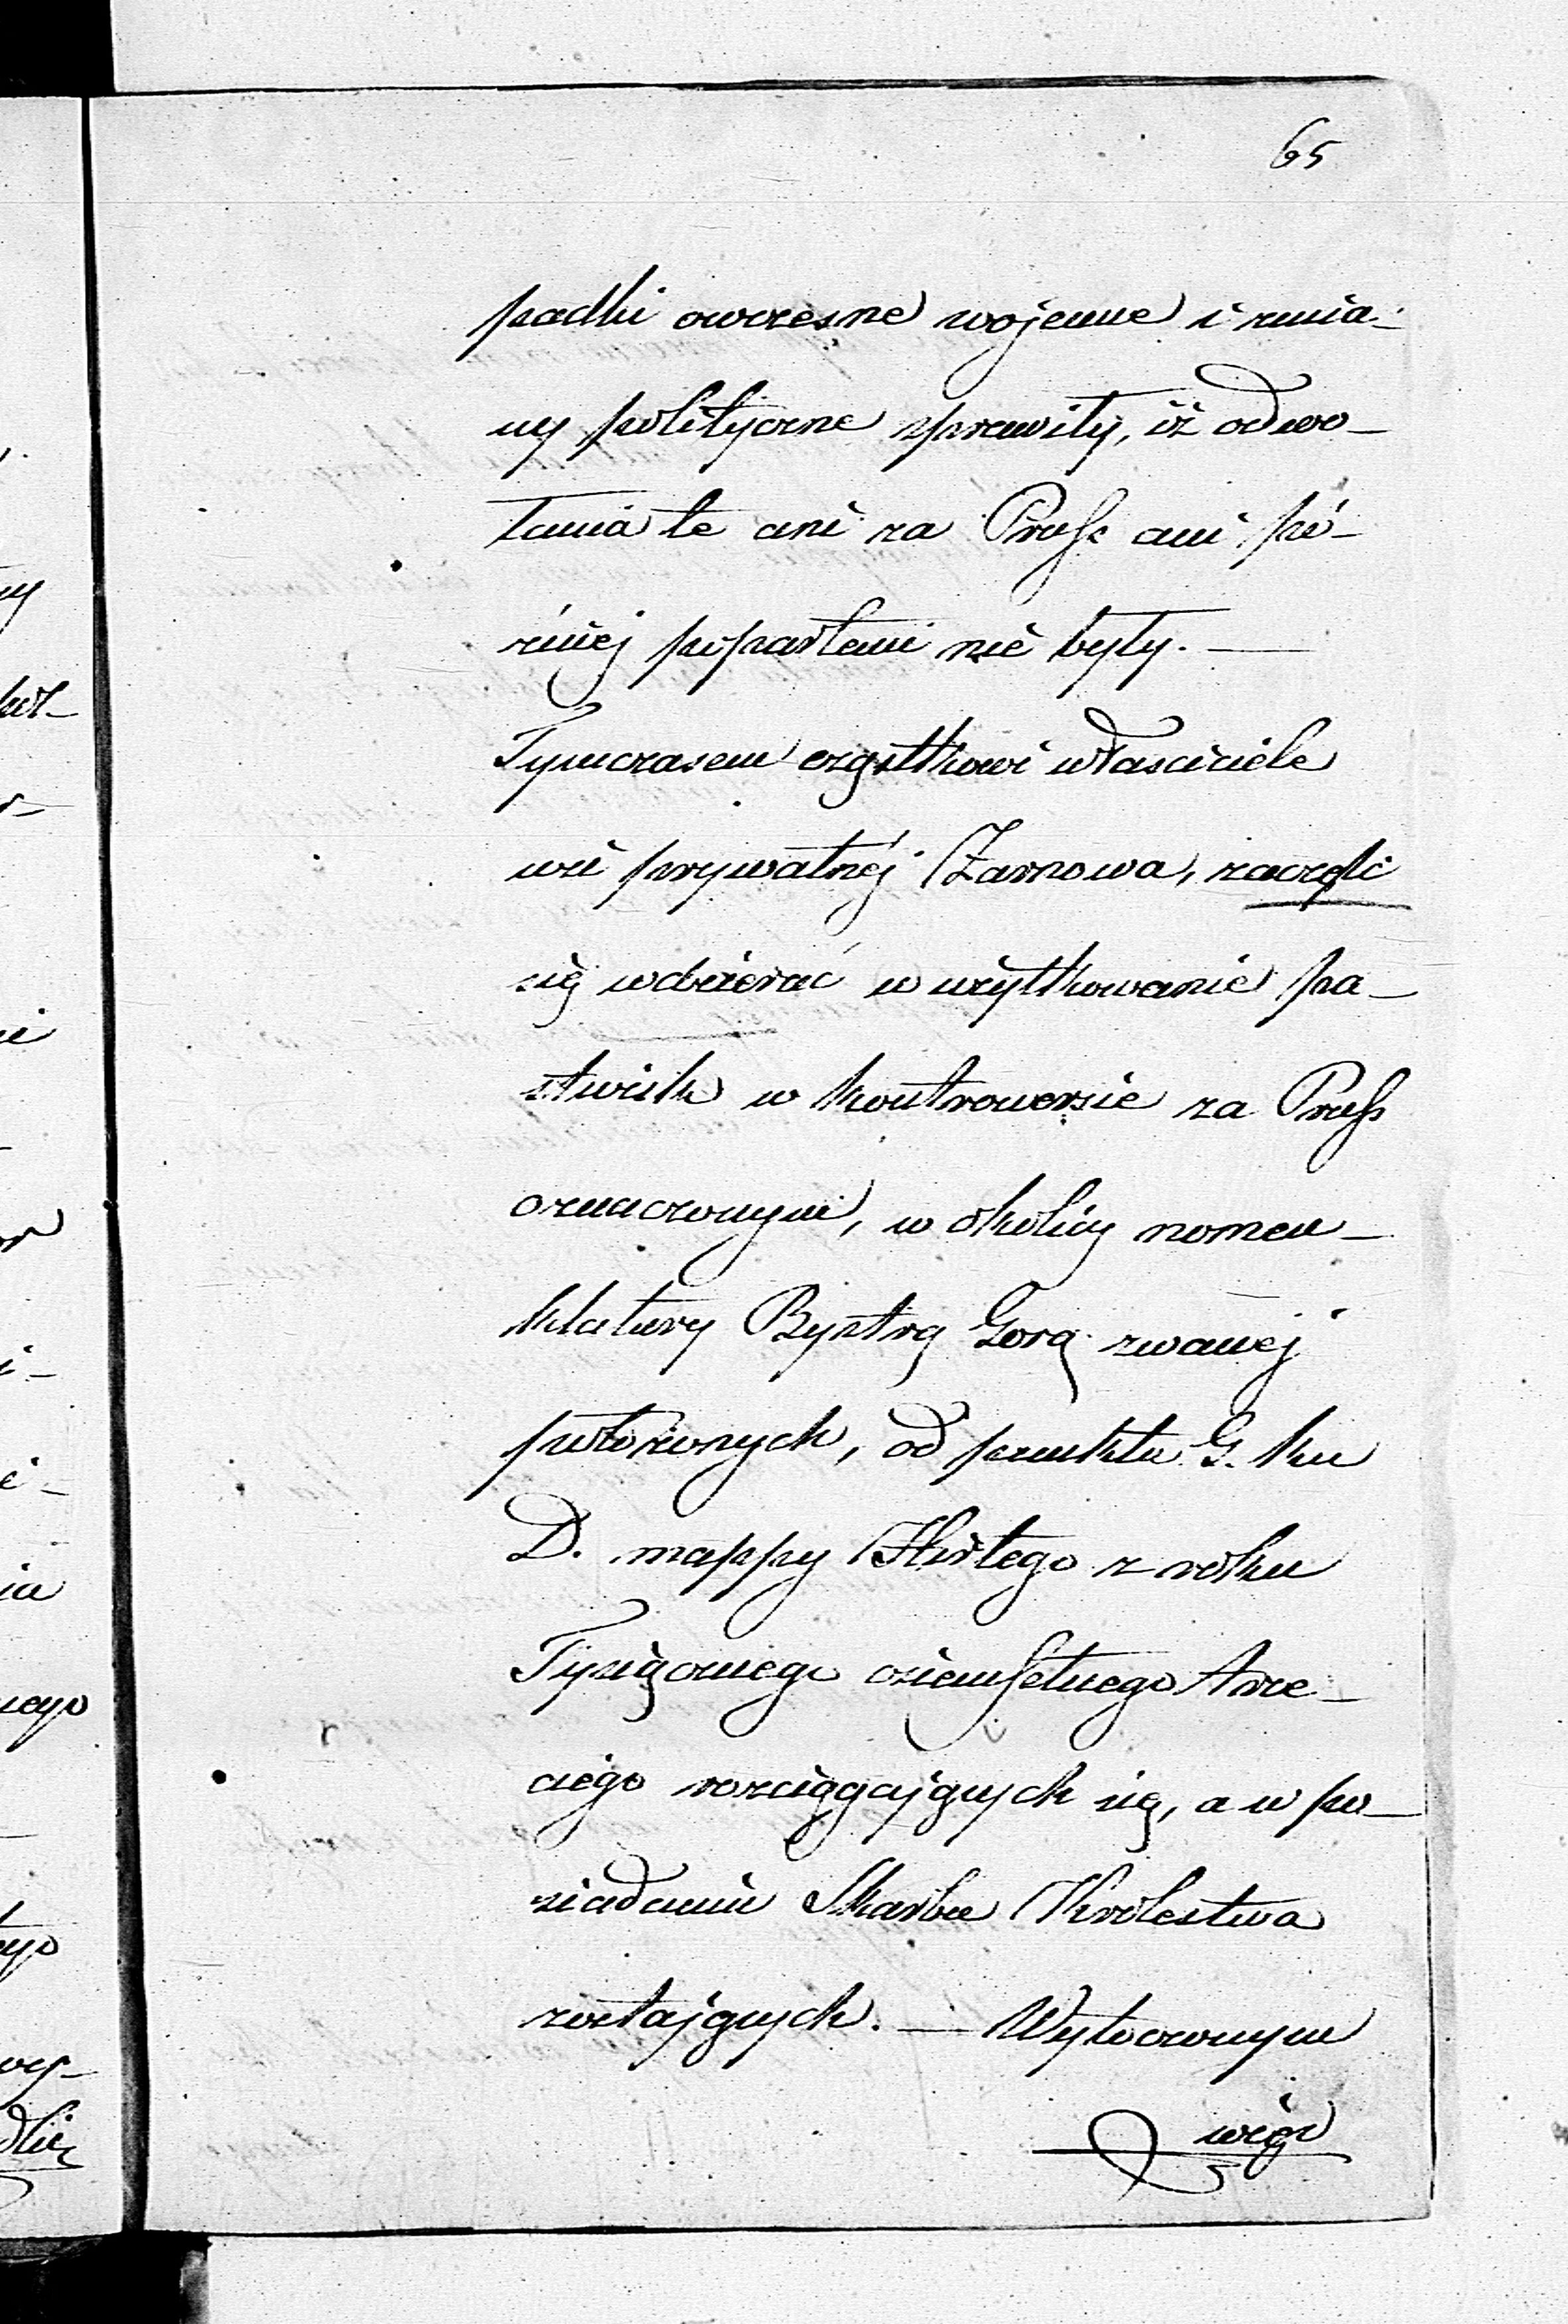 65
padki owczesne wojenne i zmia-
ny polityczne sprawiły, iż odwo-
łania te ani za Pruss ani pó-
źniej popartemi nie były. —
Tymczasem cząstkowi własciciele
wsi prywatnéj Żarnowa, zaczęli
się wdzierać w użytkowanie pa-
stwisk w kontrowersie za Pruss
oznaczonym, w okolicy nomen-
klatury Bystrą Gorą zwanej
położonych, od punktu G. ku
D. mappy Hirtego z roku
Tysiącznego ośemsetnego trze-
ciego rozciągających się, a w po-
siadaniu Skarbu Krolestwa
zostających. — Wytoczonym
więc